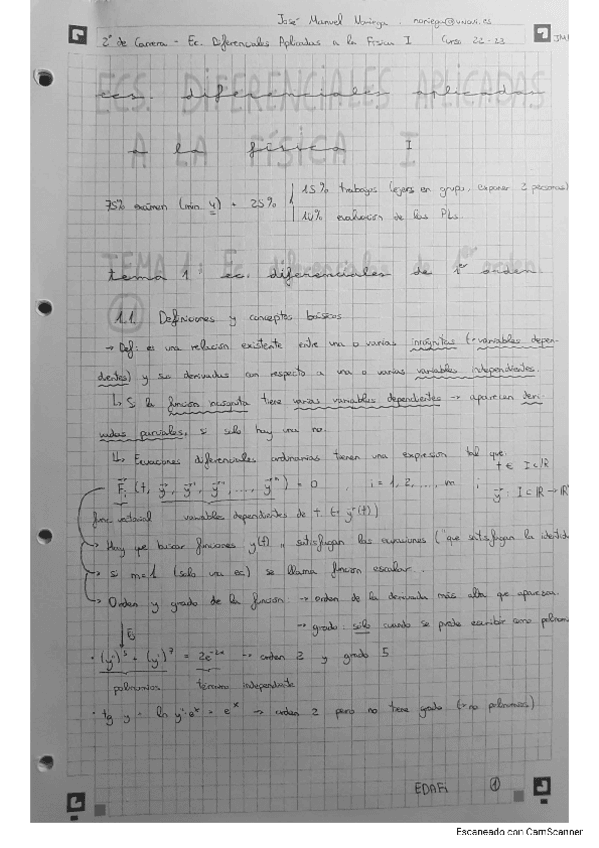 José Manuel Noriega . noriega@uniovi.es
2º de Carrera - Ec. Diferenciales Aplicadas a la Física I Curso 22-23
ecs. diferenciales aplicadas
a la física I
75% exámen (min 4) + 25%
15% trabajos (ejers en grupo, exponer 2 personas)
10% evaluación de las PLs.
tema 1: ec. diferenciales de 1er orden.
1.1. Definiciones y conceptos básicos
→ Def: es una relación existente entre una o varias incógnitas (= variables depen-
dientes) y sus derivadas con respecto a una o varias variables independientes.
↳ Si la función incógnita tiene varias variables dependientes → aparecen deri-
vadas parciales, si solo hay una no.
↳ Ecuaciones diferenciales ordinarias tienen una expresión tal que:
F⃗i (t, y⃗, y⃗', y⃗'', ..., y⃗ⁿ) = 0 , i = 1, 2, ..., m ; t ∈ I ⊂ ℝ
y⃗ : I ⊂ ℝ → ℝ
func vectorial variables dependientes de t
→ Hay que buscar funciones y(t) satisfagan las ecuaciones ("que satisfagan la identid
→ si m=1 (solo una ec) se llama función escalar.
→ Orden y grado de la función: → orden de la derivada más alta que aparezca.
→ grado: sólo cuando se puede escribir como polinom
Ej
· (y'')⁵ + (y')⁷ = 2e⁻²ˣ → orden 2 y grado 5
polinomios término independiente
· tg y · ln y'' eˣ = eˣ → orden 2 pero no tiene grado (= no polinomios)
EDAFi 1
Escaneado con CamScanner